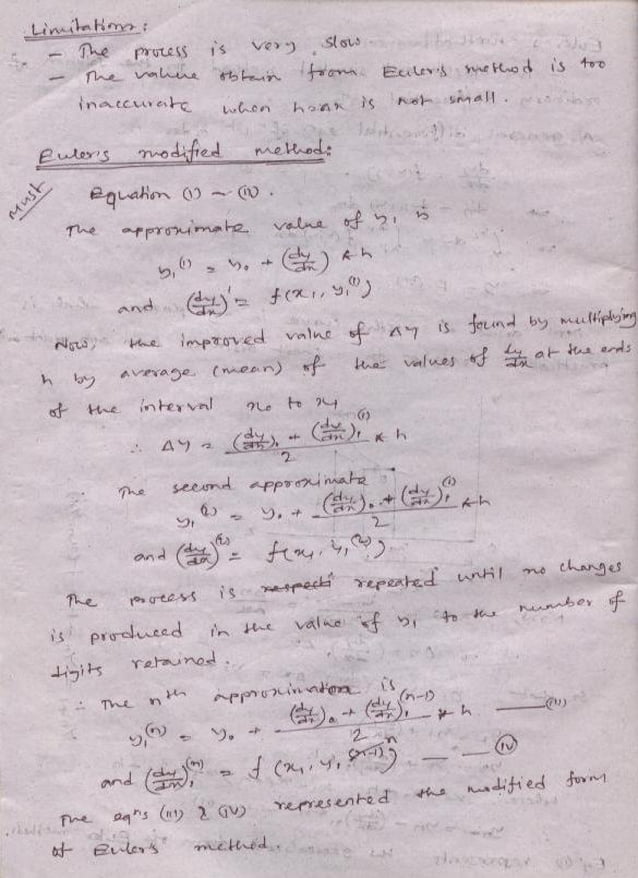 Limitations:
- The process is very slow
- The value obtain from Euler's method is too
inaccurate when h=Δx is not small.
Euler's modified method:
Must
Equation (i) ~ (ii).
The approximate value of y₁ is
y₁⁽¹⁾ = y₀ + (dy/dx) * h
and (dy/dx)' = f(x₁, y₁⁽¹⁾)
Now, the improved value of Δy is found by multiplying
h by average (mean) of the values of dy/dx at the ends
of the interval x₀ to x₁
∴ Δy = ((dy/dx)₀ + (dy/dx)₁⁽¹⁾)/2 * h
The second approximate
y₁⁽²⁾ = y₀ + ((dy/dx)₀ + (dy/dx)₁⁽¹⁾)/2 * h
and (dy/dx)⁽²⁾ = f(x₁, y₁⁽²⁾)
The process is repeated until no changes
is produced in the value of y₁ to the number of
digits retained.
∴ The nth approximation is
y₁⁽ⁿ⁾ = y₀ + ((dy/dx)₀ + (dy/dx)₁⁽ⁿ⁻¹⁾)/2 * h — (iii)
and (dy/dx)₁⁽ⁿ⁾ = f(x₁, y₁, n) — (iv)
The eqns (iii) & (iv) represented the modified form
of Euler's method.